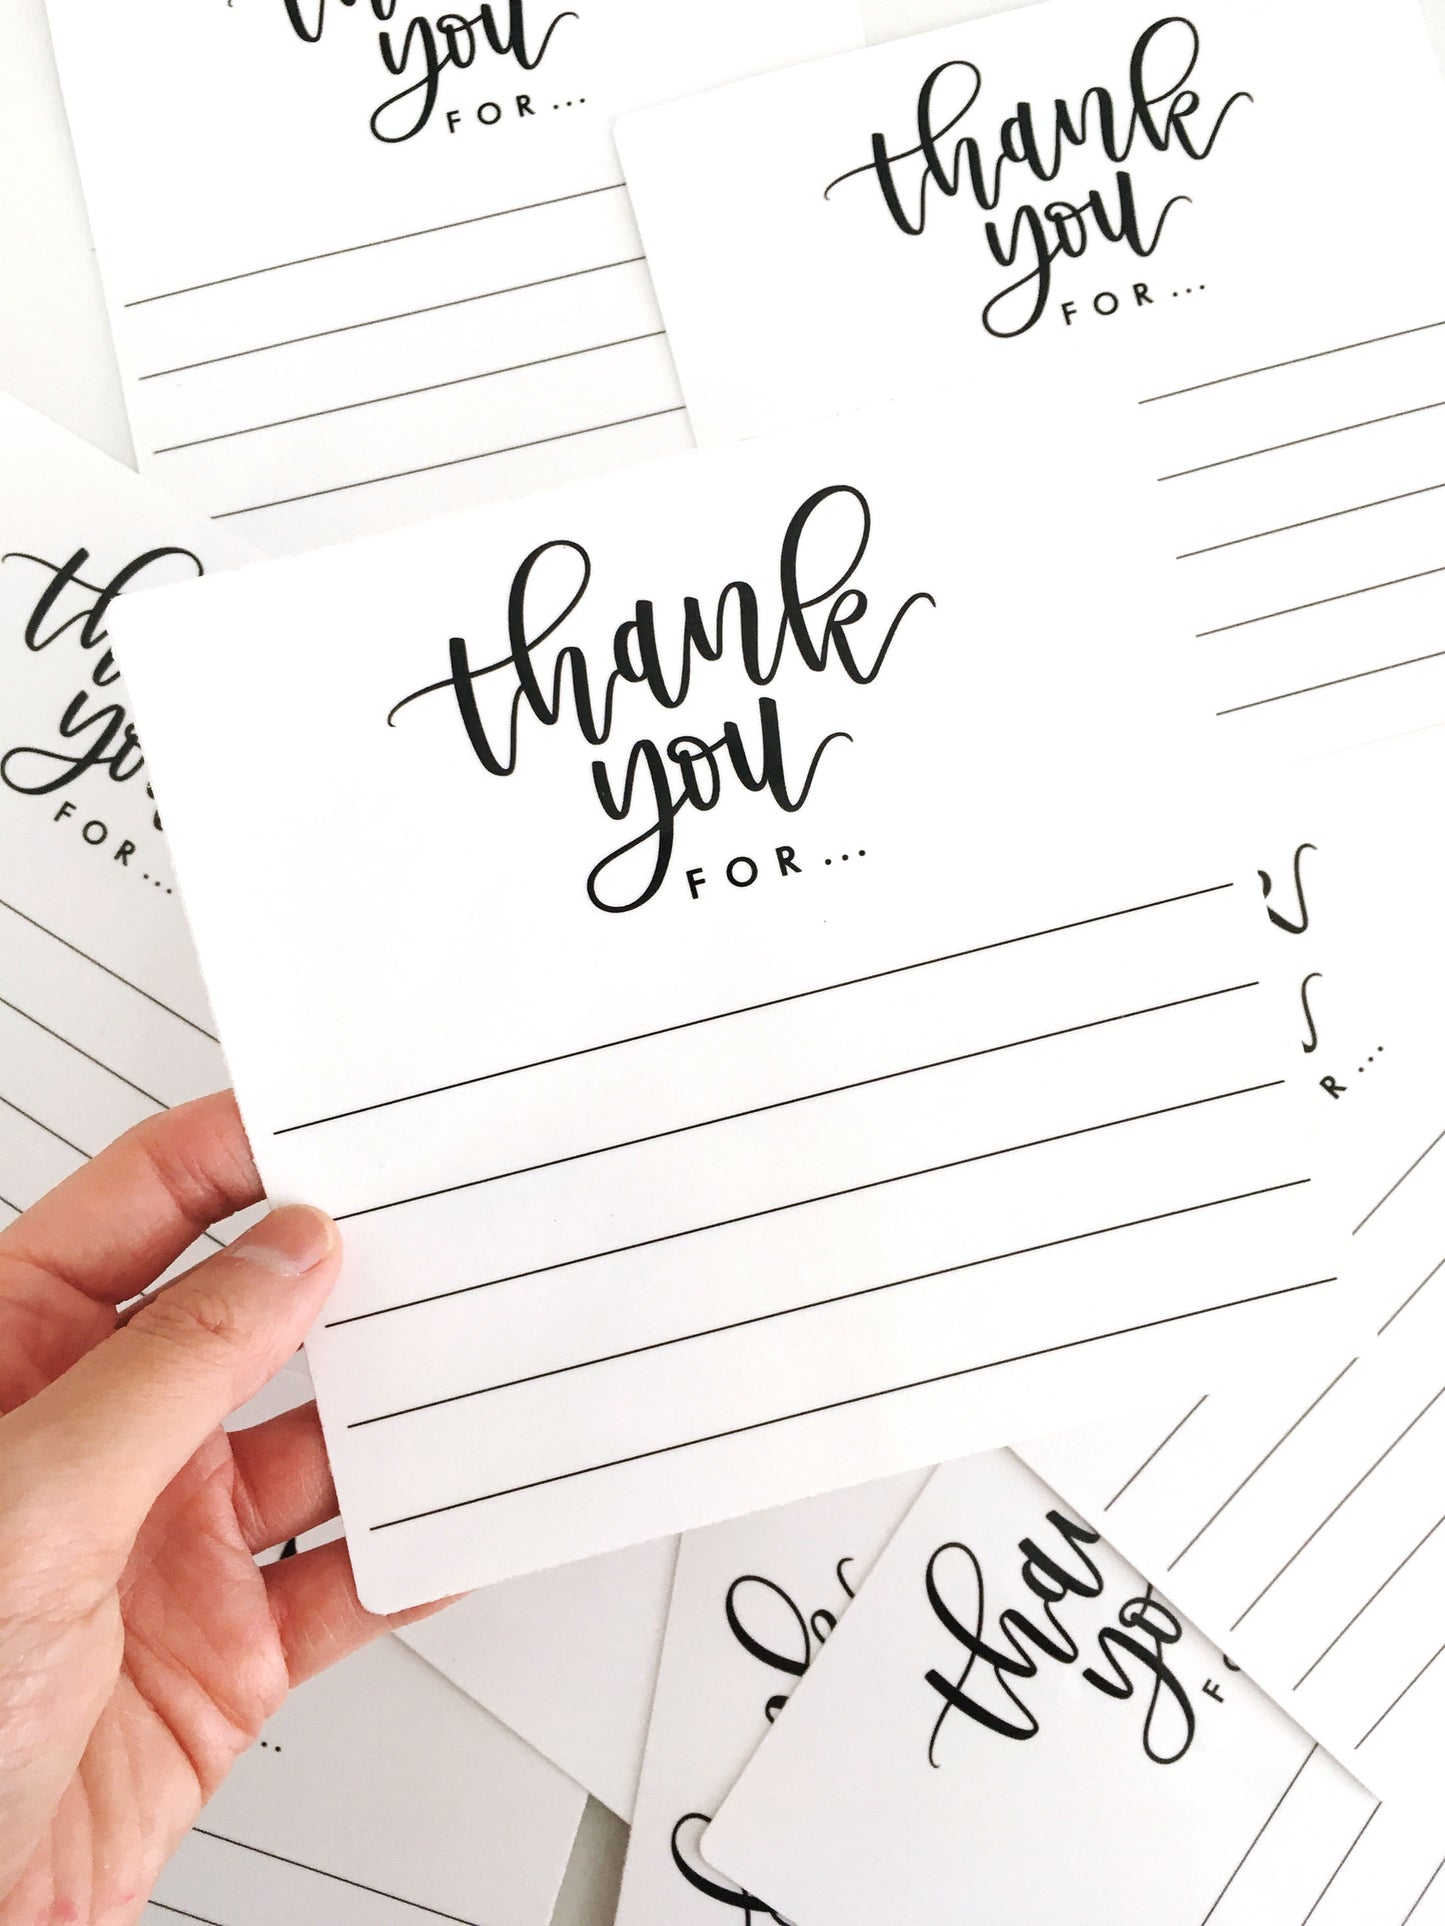 you
FOR...
thank
you
FOR...
th
yo
FOR...
thank
you
FOR...
R...
than
yo
F